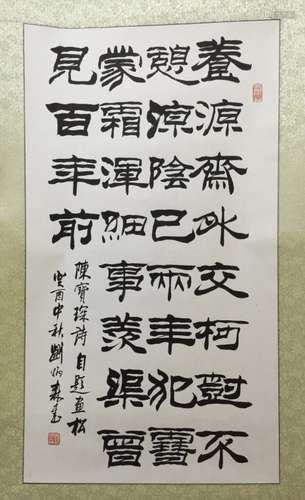 養源齋外交柯樹不
憩涼陰已兩年犯雪
蒙霜渾細事羨渠曾
見百年前
陳寶琛詩自題畫松
癸酉中秋劉炳森書